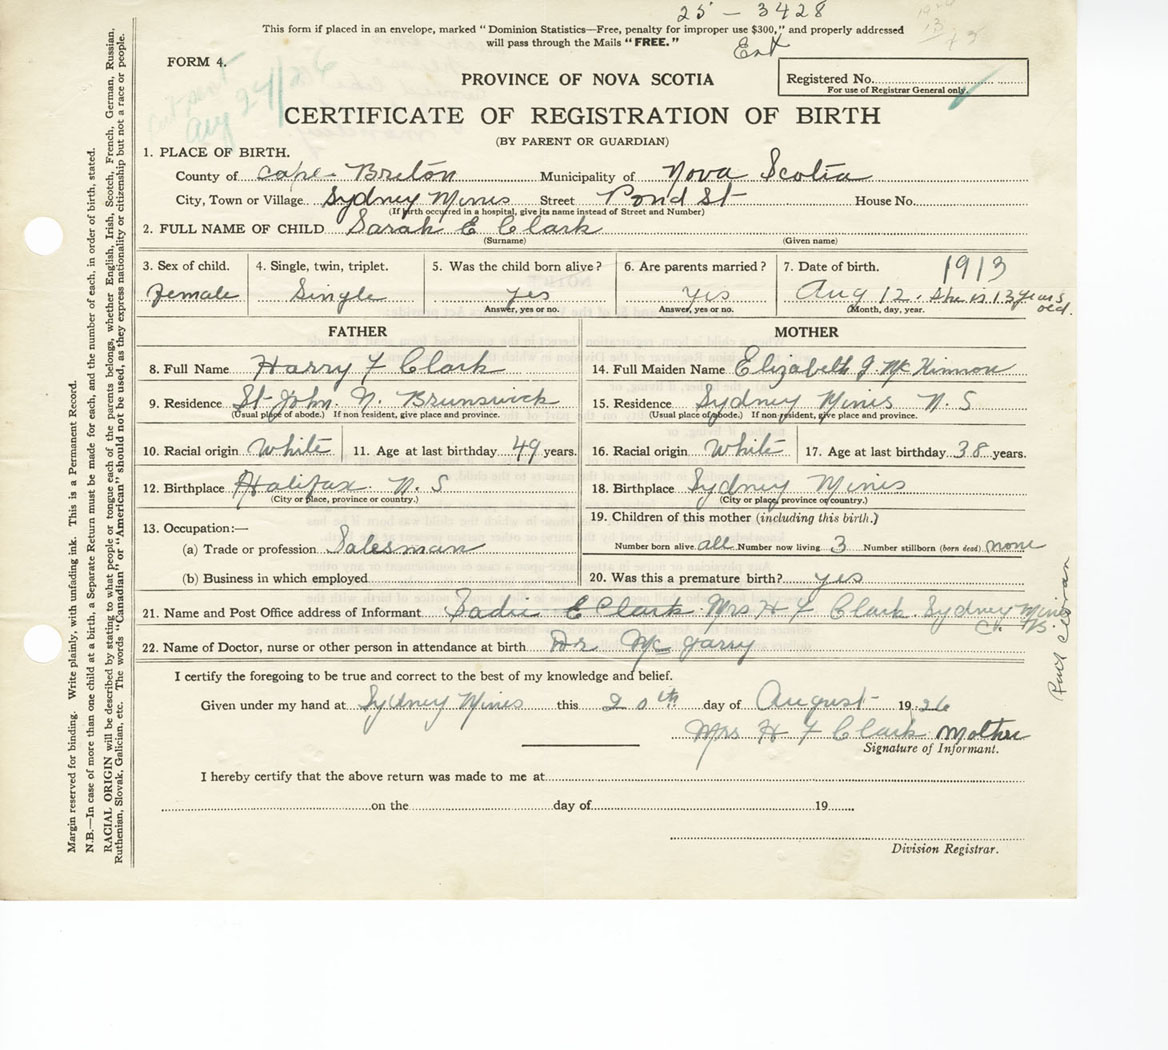 25 - 3428
This form if placed in an envelope, marked "Dominion Statistics—Free, penalty for improper use $300," and properly addressed
will pass through the Mails "FREE."
Ent
FORM 4.
PROVINCE OF NOVA SCOTIA
Registered No.
For use of Registrar General only.
Aug 24/26
CERTIFICATE OF REGISTRATION OF BIRTH
(BY PARENT OR GUARDIAN)
1. PLACE OF BIRTH.
County of Cape Breton Municipality of Nova Scotia
City, Town or Village Sydney Mines Street Pond St House No.
(If birth occurred in a hospital, give its name instead of Street and Number)
2. FULL NAME OF CHILD Sarah E Clark
(Surname) (Given name)
3. Sex of child. 4. Single, twin, triplet. 5. Was the child born alive? 6. Are parents married? 7. Date of birth. 1913
Female Single yes yes Aug 12. She is 13 years old.
Answer, yes or no. Answer, yes or no. (Month, day, year.
FATHER MOTHER
8. Full Name Harry F Clark 14. Full Maiden Name Elizabeth J. McKinnon
9. Residence St John. N. Brunswick 15. Residence Sydney Mines N. S
(Usual place of abode.) If non resident, give place and province. (Usual place of abode.) If non resident, give place and province.
10. Racial origin White 11. Age at last birthday 49 years. 16. Racial origin White 17. Age at last birthday 38 years.
12. Birthplace Halifax. N. S 18. Birthplace Sydney Mines
(City or place, province or country.) (City or place, province or country.)
13. Occupation:— 19. Children of this mother (including this birth.)
(a) Trade or profession Salesman Number born alive all Number now living 3 Number stillborn (born dead) none
(b) Business in which employed 20. Was this a premature birth? yes
21. Name and Post Office address of Informant Sadie E Clark Mrs H F Clark. Sydney Mines C. B.
22. Name of Doctor, nurse or other person in attendance at birth Dr
I certify the foregoing to be true and correct to the best of my knowledge and belief.
Given under my hand at Sydney Mines this 20th day of August 1926
Mrs H F Clark Mother
Signature of Informant.
I hereby certify that the above return was made to me at
on the day of 19
Division Registrar.
Margin reserved for binding. Write plainly, with unfading ink. This is a Permanent Record.
N.B.—In case of more than one child at a birth, a Separate Return must be made for each, and the number of each, in order of birth, stated.
RACIAL ORIGIN will be described by stating to what people or tongue each of the parents belongs, whether English, Irish, Scotch, French, German, Russian,
Ruthenian, Slovak, Galician, etc. The words "Canadian" or "American" should not be used, as they express nationality or citizenship but not a race or people.